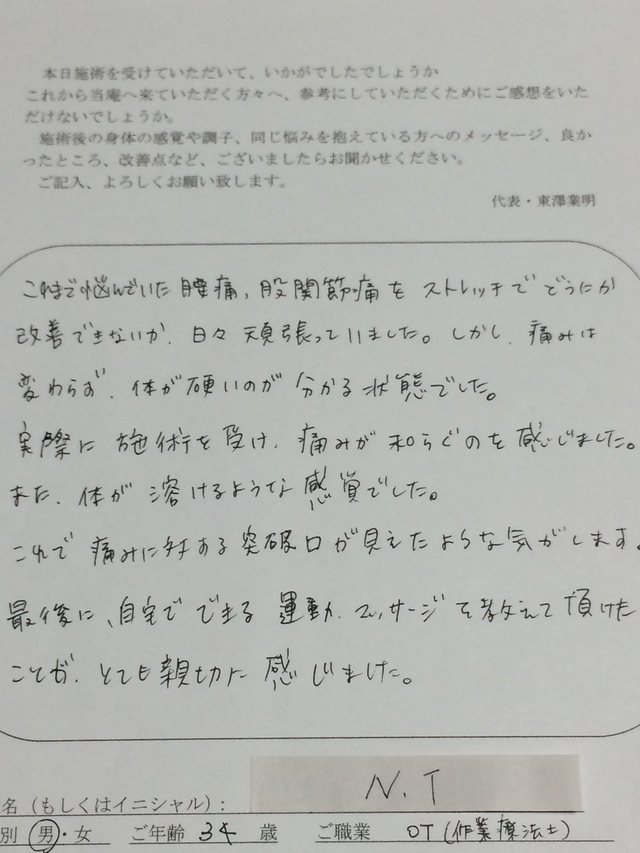 本日施術を受けていただいて、いかがでしたでしょうか
これから当庵へ来ていただく方々へ、参考にしていただくためにご感想をいた
だけないでしょうか。
施術後の身体の感覚や調子、同じ悩みを抱えている方へのメッセージ、良か
ったところ、改善点など、ございましたらお聞かせください。
ご記入、よろしくお願い致します。
代表・東澤業明
これまで悩んでいた腰痛，股関節痛をストレッチでどうにか
改善できないか、日々頑張っていました。しかし、痛みは
変わらず、体が硬いのが分かる状態でした。
実際に施術を受け、痛みが和らぐのを感じました。
また、体が溶けるような感覚でした。
これで痛みに対する突破口が見えたような気がします。
最後に、自宅でできる運動、マッサージを教えて頂けた
ことが、とても親切に感じました。
名（もしくはイニシャル）： N.T
別 男・女 ご年齢 34 歳 ご職業 OT(作業療法士)